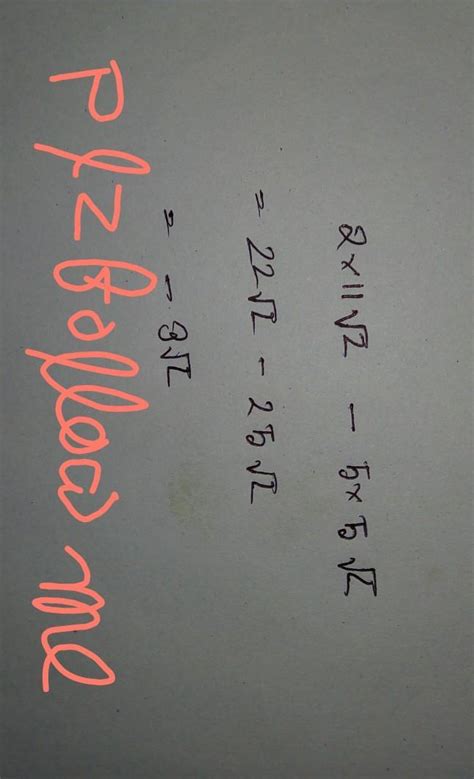 2×11√2 – 5×5√2
= 22√2 – 25√2
= – 3√2
Plz follow me